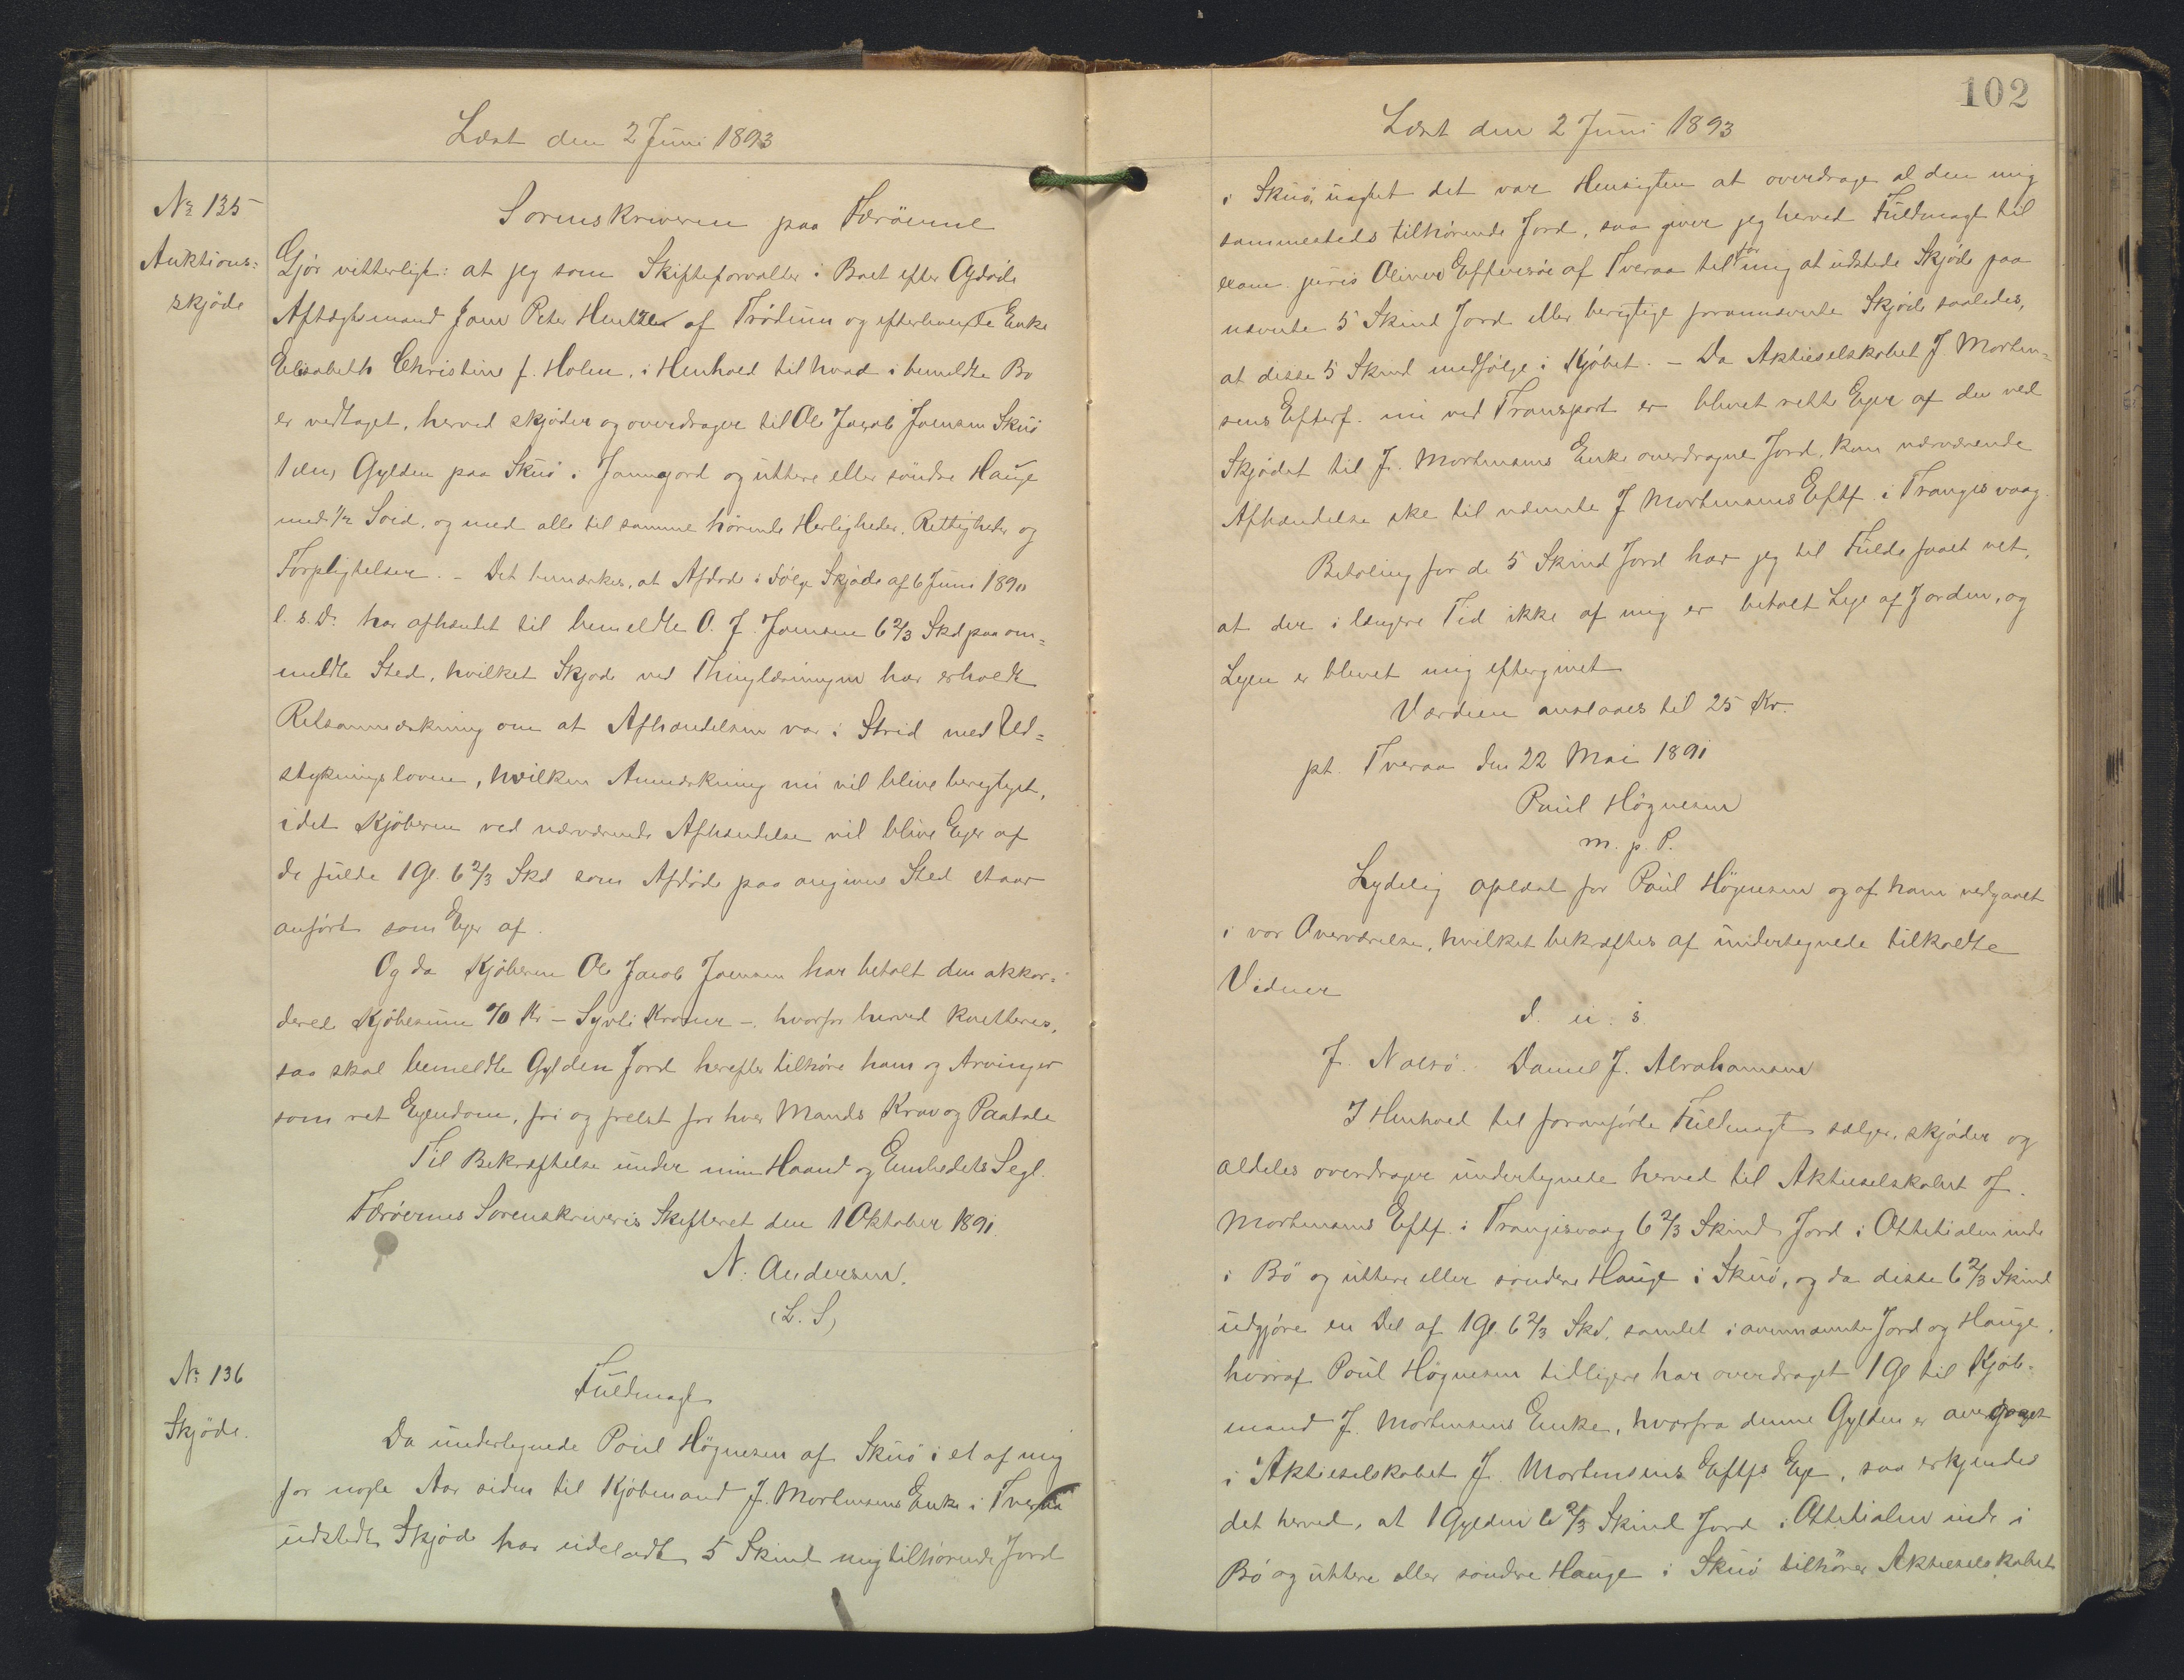 Læst den 2 Juni 1893
No 135
Auktions=
skjøde
Sorenskriveren paa Færöerne
Gjör vitterligt: at jeg som Skifteforvalter i Boet efter Afdøde
Aftægtsmand Joen Peter Hentze af Frodum og efterlevende Enke
Elisabeth Christine f. Holm, i Henhold til hvad i bemeldte Bo
er vedtaget, herved skjøder og overdrager til Ole Jacob Joensen Skuö
1 (en) Gylden paa Skuö i Jannagord og üttere eller söndre Hauge
med 1/2 Soid, og med alle til samme hörende Herligheder, Rettigheder og
Forpligtelser. - Det bemærkes, at Afdøde i Følge Skjøde af 6 Juni 1890
l. s. D. har afhændet til bemeldte O. J. Joensen 6 2/3 Skd paa om=
meldte Sted, hvilket Skjøde ved Thinglæsningen har erholdt
Retsanmærkning om at Afhændelsen var i Strid med Ud=
stykningsloven, hvilken Anmærkning nu vil blive berigtiget,
idet Kjøberen ved nærværende Afhændelse vil blive Ejer af
de fulde 1 Gl. 6 2/3 Skd som Afdøde paa angivne Sted staar
anført som Ejer af.
Og da Kjøberen Ole Jacob Joensen har betalt den akkor=
derede Kjøbesum 70 Kr - Syvti Kroner - hvorfor herved kvitteres,
saa skal bemeldte Gylden Jord herefter tilhøre ham og Arvinger
som ret Ejendom, fri og frelst for hver Mands Krav og Paatale
Til Bekræftelse under min Haand og Embedets Segl.
Færøernes Sorenskriveris Skifteret den 1 Oktober 1891.
N. Andersen.
(L. S)
No 136
Skjøde.
Fuldmagt
Da undertegnede Poul Högnesen af Skuö i et af mig
for nogle Aar siden til Kjøbmand J. Mortensens Enke i Tveraa
udstedt Skjøde har udeladt 5 Skind mig tilhørende Jord
102
Læst den 2 Juni 1893
i Skuö, uagtet det var Hensigten at overdrage al den mig
sammesteds tilhørende Jord, saa giver jeg herved Fuldmagt til
exam. juris Oliver Effersöe af Tveraa til for mig at udstede Skjøde paa
nævnte 5 Skind Jord eller berigtige forannævnte Skjøde saaledes,
at disse 5 Skind medfølge i Kjøbet. - Da Aktieselskabet J. Morten=
sens Efterf. nu ved Transport er blevet rette Ejer af den ved
Skjødet til J. Mortensens Enke overdragne Jord, kan nærværende
Afhændelse ske til nævnte J Mortensens Eftf. i Trangisvaag.
Betaling for de 5 Skind Jord har jeg til Fulde faaet ved,
at der i længere Tid ikke af mig er betalt Leje af Jorden, og
Lejen er blevet mig eftergivet
Værdien anslaaes til 25 Kr.
pt. Tveraa den 22 Mai 1891
Poul Högnesen
m. p. P.
Lydelig oplæst for Poul Högnesen og af ham vedgaaet
i vor Overværelse, hvilket bekræftes af undertegnede tilkaldte
Vidner
d. u. s.
J. Nolsö. Daniel J. Abrahamsen
I Henhold til foranførte Fuldmagt sælger, skjøder og
aldeles overdrager undertegnede herved til Aktieselskabet J.
Mortensens Eftf. i Trangisvaag 6 2/3 Skind Jord i Ottetialen inde
i Bö og üttere eller söndre Hauge i Skuö, og da disse 6 2/3 Skind
udgjøre en Del af 1 Gl. 6 2/3 Skd. samlet i ovennævnte Jord og Hauge,
hvoraf Poul Högnesen tidligere har overdraget 1 Gl til Kjøb-
mand J. Mortensens Enke, hvorfra denne Gylden er overgaaet
i Aktieselskabet J. Mortensens Eftfs Eje, saa erkjendes
det herved, at 1 Gylden 6 2/3 Skind Jord i Ottetialen inde i
Bö og üttere eller söndre Hauge i Skuö tilhører Aktieselskabet